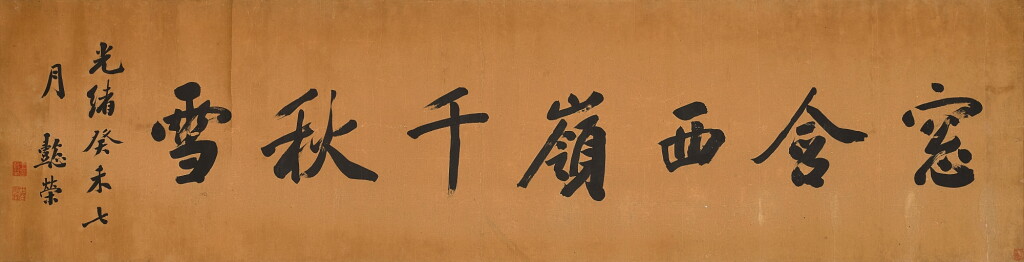 窓含西嶺千秋雪
光緒癸未七
月 懿榮